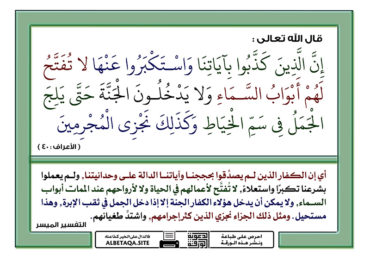 قال الله تعالى :
إِنَّ الَّذِينَ كَذَّبُوا بِآيَاتِنَا وَاسْتَكْبَرُوا عَنْهَا لَا تُفَتَّحُ
لَهُمْ أَبْوَابُ السَّمَاءِ وَلَا يَدْخُلُونَ الْجَنَّةَ حَتَّى يَلِجَ
الْجَمَلُ فِي سَمِّ الْخِيَاطِ وَكَذَلِكَ نَجْزِي الْمُجْرِمِينَ
( الأعراف : ٤٠ )
أي إن الكفار الذين لـم يصدِّقوا بحججنـا وآياتنـا الدالة علـى وحدانيتنا, ولـم يعملوا
بشرعنا تكبرًا واستعلاءً, لا تُفتَّح لأعمالهم في الحياة ولا لأرواحهم عند الممات أبواب
السمـاء, ولا يمكن أن يدخل هؤلاء الكفار الجنة إلا إذا دخل الجمل في ثقب الإبرة, وهذا
مستحيل. ومثل ذلك الجزاء نجزي الذين كثر إجرامهم, واشتدَّ طغيانهم.
التفسير الميسر
احرص على طباعة
ونشر هذه الورقة
ALBETAQA.SITE